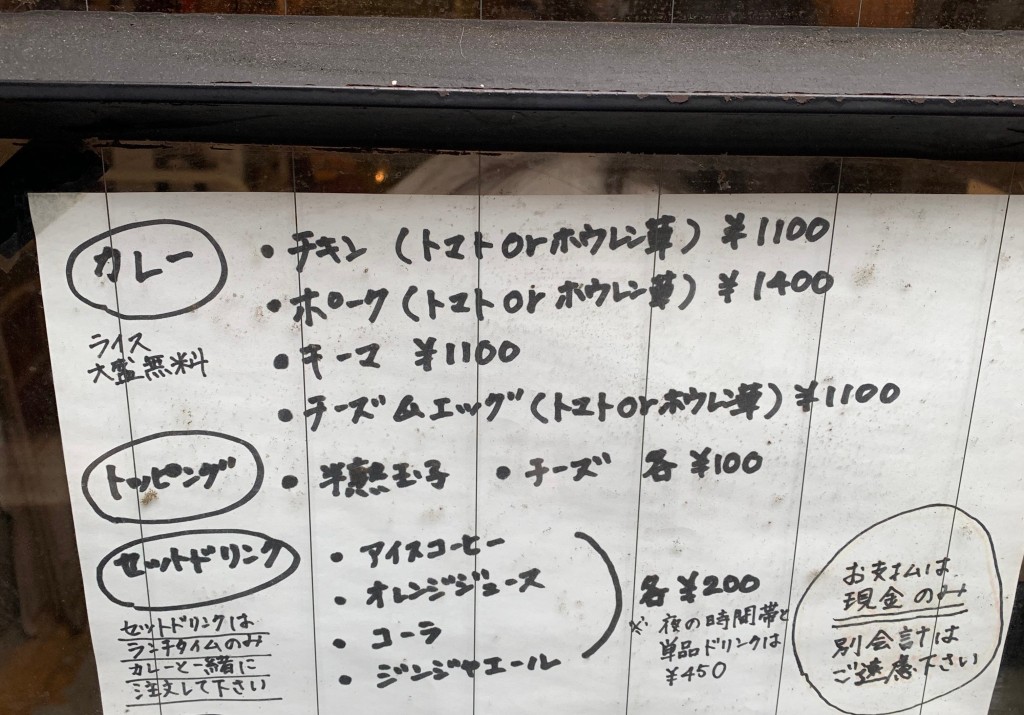 カレー
・チキン(トマトorホウレン草)¥1100
・ポーク(トマトorホウレン草)¥1400
ライス
大盛無料
・キーマ ¥1100
・チーズムエッグ(トマトorホウレン草)¥1100
トッピング
・半熟玉子 ・チーズ 各¥100
セットドリンク
・アイスコーヒー
・オレンジジュース
・コーラ
・ジンジャエール
各¥200
※夜の時間帯と
単品ドリンクは
¥450
セットドリンクは
ランチタイムのみ
カレーと一緒に
注文して下さい
お支払は
現金のみ
別会計は
ご遠慮下さい